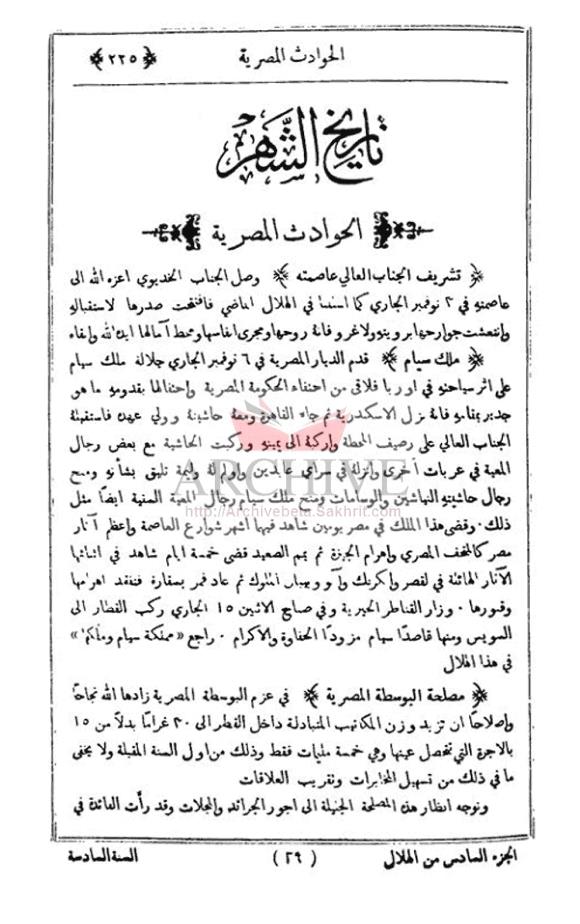 الحوادث المصرية ﴿ ٢٢٥ ﴾
تاريخ الشهر
الحوادث المصرية
﴿ تشريف الجناب العالي عاصمته ﴾ وصل الجناب الخديوي اعزه الله الى
عاصمته في ٢ نوفمبر الجاري كما اسلفنا في الهلال الماضي فافتتحت صدرها لاستقباله
وانتعشت جوارحها برؤيته ولا غرو فانه روحها ومجرى انفاسها ومحط آمالها ايده الله وابقاه
﴿ ملك سيام ﴾ قدم الديار المصرية في ٦ نوفمبر الجاري جلالة ملك سيام
على اثر سياحته في اوربا فلاقى من احتفاء الحكومة المصرية واحتفالها بقدومه ما هو
جدير بمقامه فانه نزل الاسكندرية ثم جاء القاهرة ومعه حاشيته وولي عهده فاستقبله
الجناب العالي على رصيف المحطة واركبه الى يمينه وركبت الحاشية مع بعض رجال
المعية في عربات أخرى وانزله في سراي عابدين واولم له وليمة تليق بشأنه ومنح
رجال حاشيته النياشين والوسامات ومنح ملك سيام رجال المعية السنية ايضًا مثل
ذلك . وقضى هذا الملك في مصر يومين شاهد فيها اشهر شوارع العاصمة واعظم آثار
مصر كالمتحف المصري واهرام الجيزة ثم يمم الصعيد قضى خمسة ايام شاهد في اثنائها
الآثار الهائلة في لقصر والكرنك و وبيبان الملوك ثم عاد فمر بسقارة فتفقد اهرامها
وقبورها . وزار القناطر الخيرية وفي صباح الاثنين ١٥ الجاري ركب القطار الى
السويس ومنها قاصدًا سيام مزودًا الحفاوة والاكرام . راجع «مملكة سيام وملكها»
في هذا الهلال
﴿ مصلحة البوسطة المصرية ﴾ في عزم البوسطة المصرية زادها الله نجاحًا
واصلاحًا ان تزيد وزن المكاتيب المتبادلة داخل القطر الى ٣٠ غرامًا بدلًا من ١٥
بالاجرة التي تتحصل عينها وهي خمسة مليات فقط وذلك من اول السنة المقبلة ولا يخفى
ما في ذلك من تسهيل المخابرات وتقريب العلاقات
ونوجه انظار هذه المصلحة الجليلة الى اجور الجرائد والمجلات وقد رأت الفائدة في
الجزء السادس من الهلال ( ٢٩ ) السنة السادسة
ARCHIVE
http://Archivebeta.Sakhrit.com